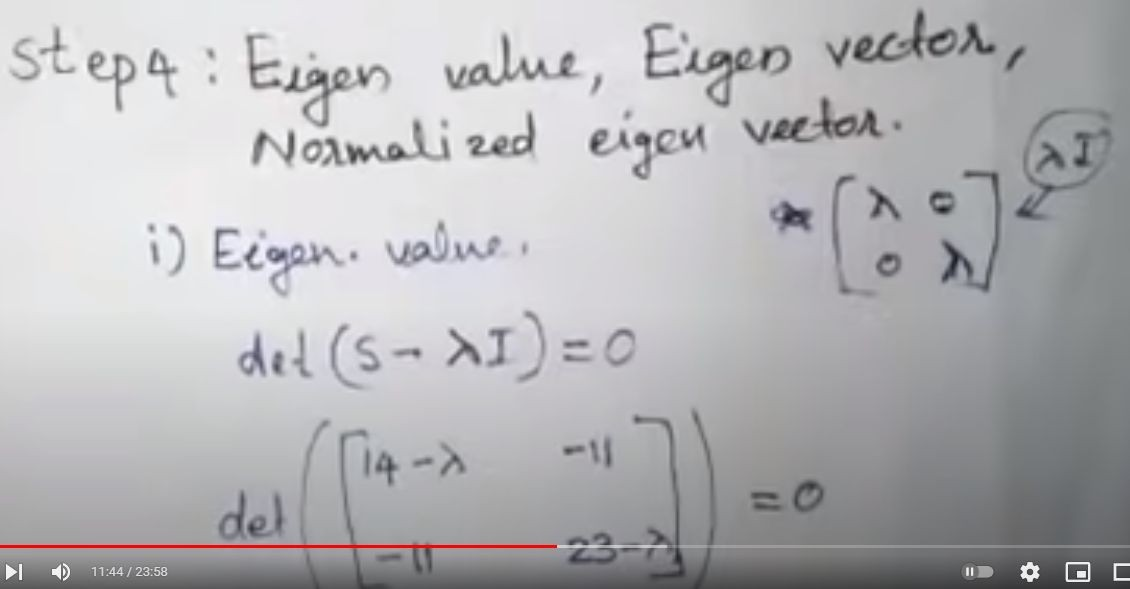 Step4 : Eigen value, Eigen vector,
Normalized eigen vector.
λI
* [λ 0
0 λ]
i) Eigen. value.
det (S - λI) = 0
det ([14 - λ -11
-11 23 - λ]) = 0
11:44 / 23:58